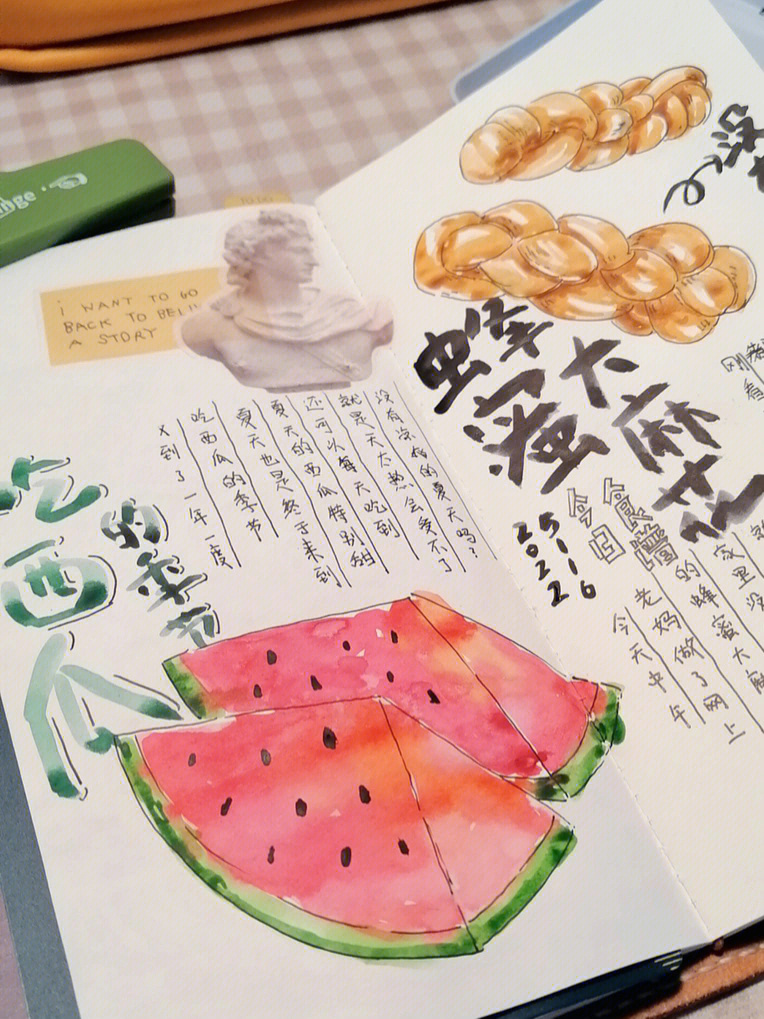 TO DO
i WANT TO GO
BACK TO BELI
A STORY
吃西瓜
的季节
x到了一年一度
吃西瓜的季节
夏天也是终于来到
夏天的西瓜特别甜
还可以每天吃到
就是天太热会受不了
没有凉快的夏天吗?
没
蜂蜜
大麻花
今日
食谱
2022
5116
今天中午
老妈做了网上
的蜂蜜大麻
家里没
刚
看
nge